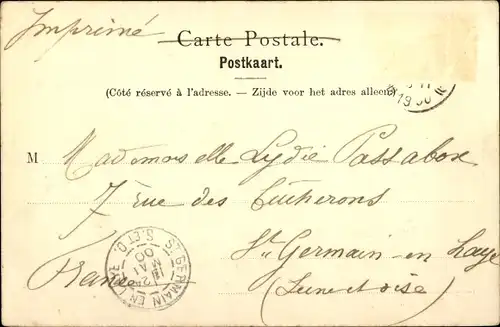 Imprimé
Carte Postale.
Postkaart.
(Côté réservé à l'adresse. — Zijde voor het adres alleen)
1900
M Mademoiselle Lydie
7 rue des Bûcherons
St Germain-en Laye
France
(Seine et Oise)
ST GERMAIN EN LAYE
S. ET O.
MAI
00